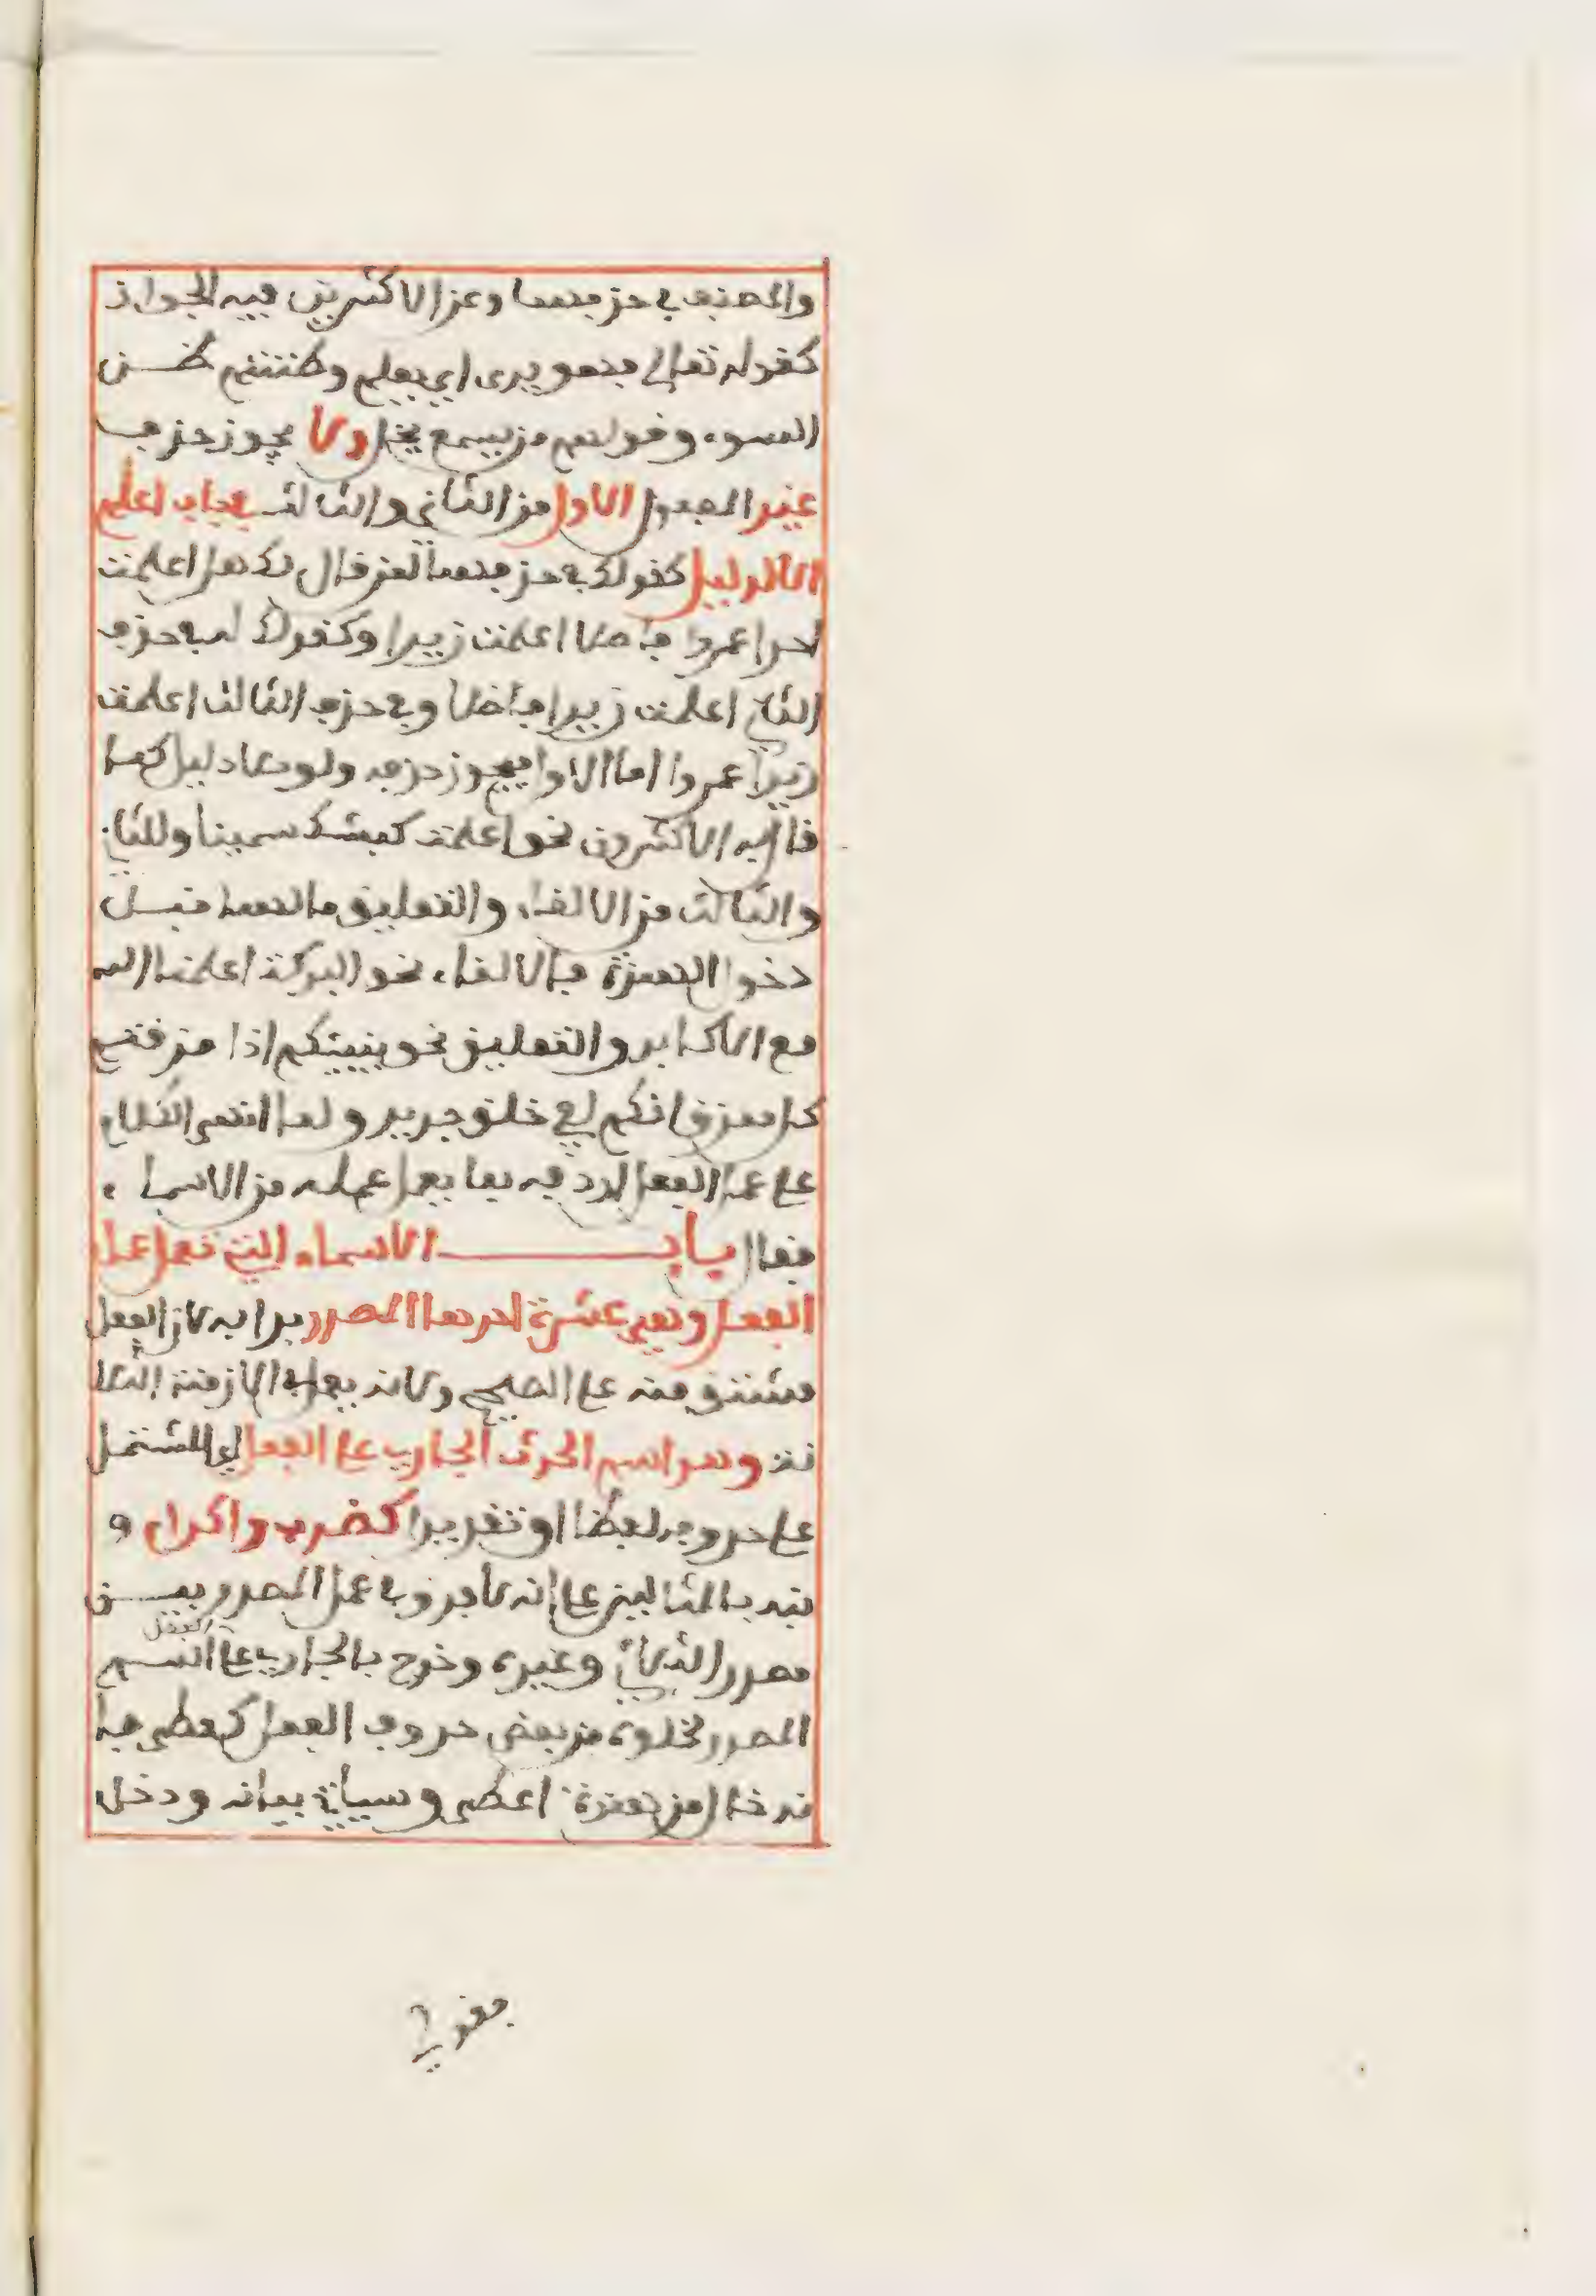 والمصنف في حذفهما وعن الاكثرين فيه الجواز
كقوله تعالى فهو يرى اي يعلم وظننتم ظن
السوء وقولهم من يسمع يخل ولا يجوز حذف
غير المفعول الاول من الثاني والثالث في باب اعلم
الا لدليل كقولك في حذفهما لمن قال لك هل اعلمت
احدا عمروا فاضلا اعلمت زيدا وكقولك له في حذف
الثاني اعلمت زيدا فاضلا وفي حذف الثالث اعلمت
زيدا عمروا اما الاول فيجوز حذفه ولو بلا دليل كما
قاله الاكثرون نحو اعلمت كبشك سمينا وللثاني
والثالث من الالغاء والتعليق ما لهما قبل
دخول الهمزة فالالغاء نحو البركة اعلمنا الله
مع الاكابر والتعليق نحو ينبئكم اذا مزقتم
كل ممزق انكم لفي خلق جديد ولما انتهى الكلام
على عمل الفعل اردفه بما يعمل عمله من الاسماء
فقال باب الاسماء التي تعمل عمل
الفعل وهي عشرة احدها المصدر بدا به لان الفعل
مشتق منه على الصحيح ولانه يعمل في الازمنة الثلا
ثة وهو اسم الحدث الجاري على الفعل اي المشتمل
على حروفه لفظا او تقديرا كضرب واكرام و
نبه بالمثالين على انه لا فرق في عمل المصدر بين
مصدر الثلاثي وغيره وخرج بالجاري على الفعل اسم
المصدر لخلوه من بعض حروف الفعل كعطى فا
نه خال من همزة اعطى وسياتي بيانه ودخل